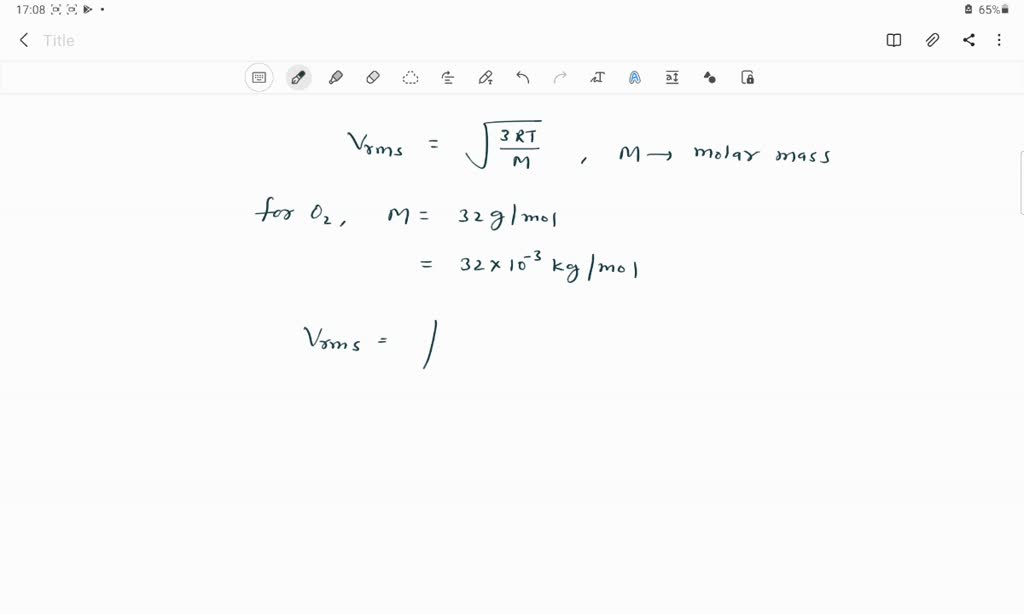 17:08 65%
Title
Vrms = √(3RT/M) , M → molar mass
for O₂, M = 32 g/mol
= 32 × 10⁻³ kg/mol
Vrms =